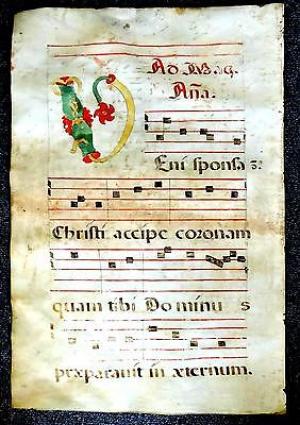 Ad Mag.
Aña.
Veni sponsa
Christi accipe coronam
quam tibi Dominus
præparavit in æternum.